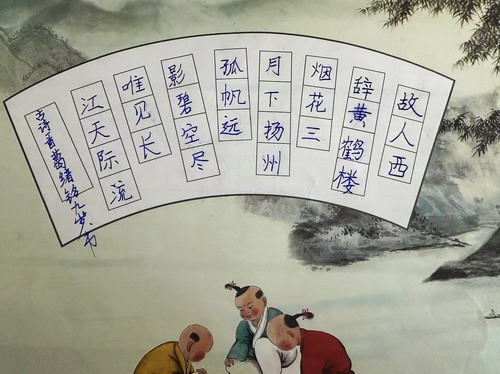 故人西
辞黄鹤楼
烟花三
月下扬州
孤帆远
影碧空尽
唯见长
江天际流
古诗一首葛九岁书